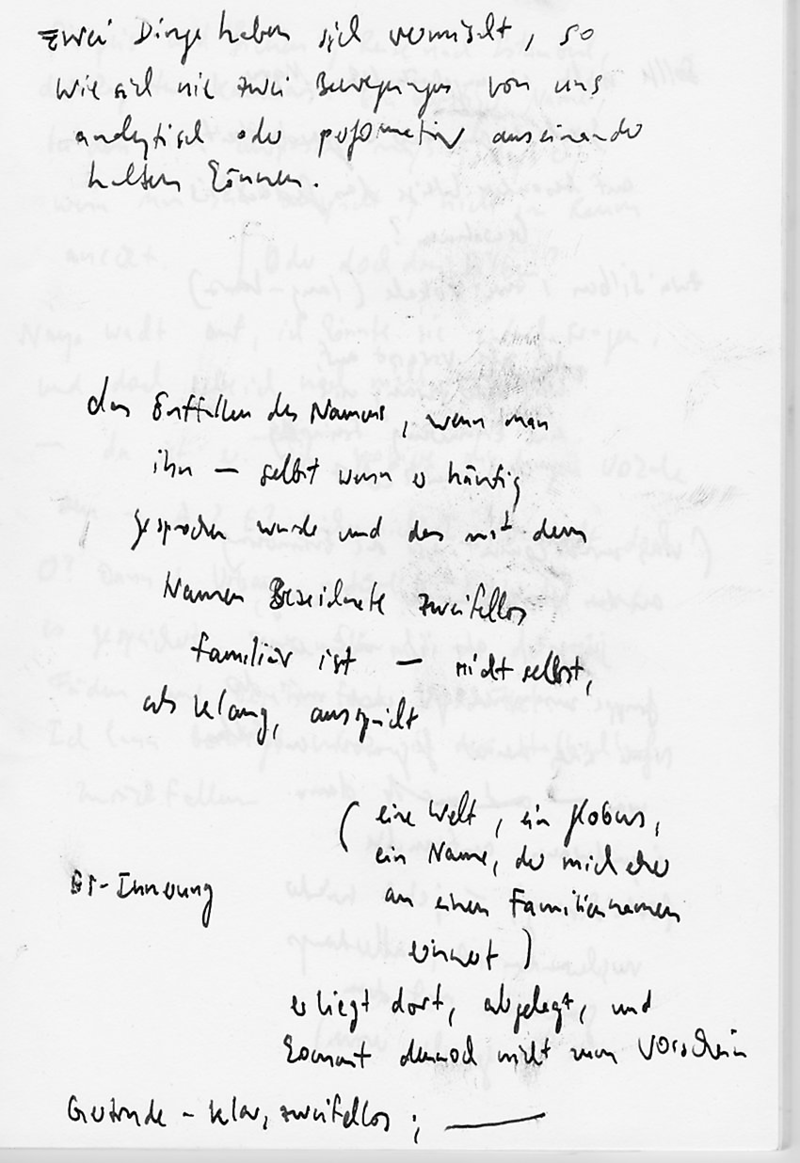 Zwei Dinge haben sich vermischt, so
wie sich nie zwei Bewegungen von uns
analytisch oder performativ auseinander
halten können.
das Entfallen des Namens, wenn man
ihn — selbst wenn er häufig
gesprochen wurde und das mit dem
Namen Bezeichnete zweifellos
familiär ist — nicht selbst,
als Klang, ausspricht
( eine Welt, ein Globus,
ein Name, der mich eher
an einen Familiennamen
erinnert )
Er-Innerung
er liegt dort, abgelegt, und
kommt dennoch nicht zum Vorschein
Gertrude – klar, zweifellos ; —